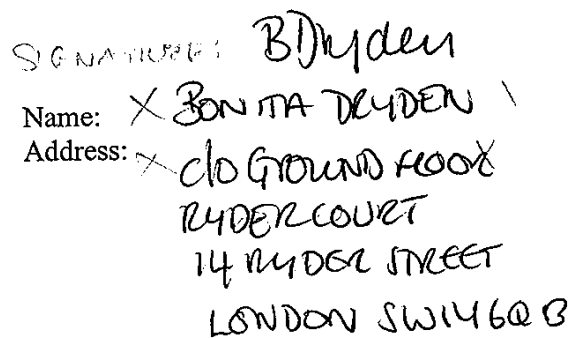 SIGNATURE: BDryden
Name: X BONITA DRYDEN
Address: X c/o GROUND FLOOR
RYDER COURT
14 RYDER STREET
LONDON SW1Y6QB